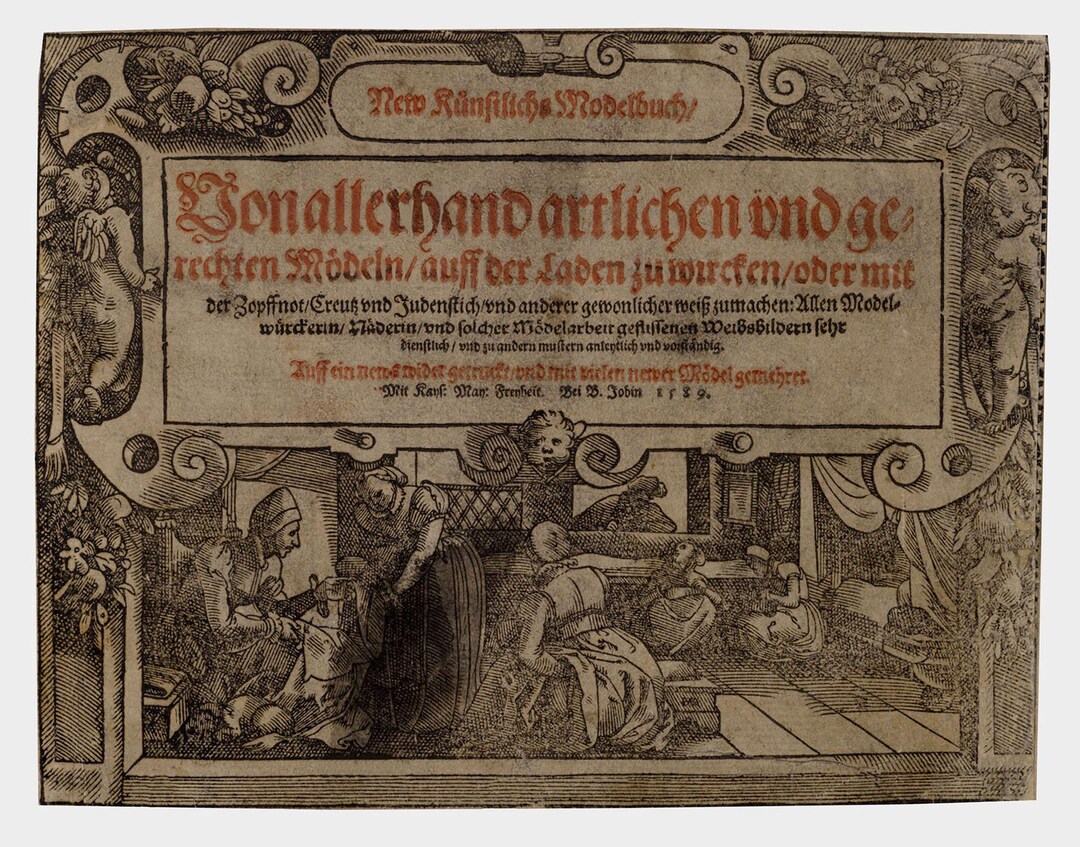 New Künstlichs Modelbuch/
Von allerhand artlichen vnd ge-
rechten Mödeln/ auff der Laden zu wircken/ oder mit
der Zopffnot/ Creutz vnd Judenstich/ vnd anderer gewonlicher weiß zumachen: Allen Model-
würckerin/ Näderin/ vnd solcher Mödelarbeit geflissenen Weibsbildern sehr
dienstlich/ vnd zu andern mustern anleytlich vnd vorständig.
Auff ein news wider getruckt/ vnd mit vielen newer Mödel gemehret.
Mit Kays: May: Freyheit. Bei B. Jobin 1589.